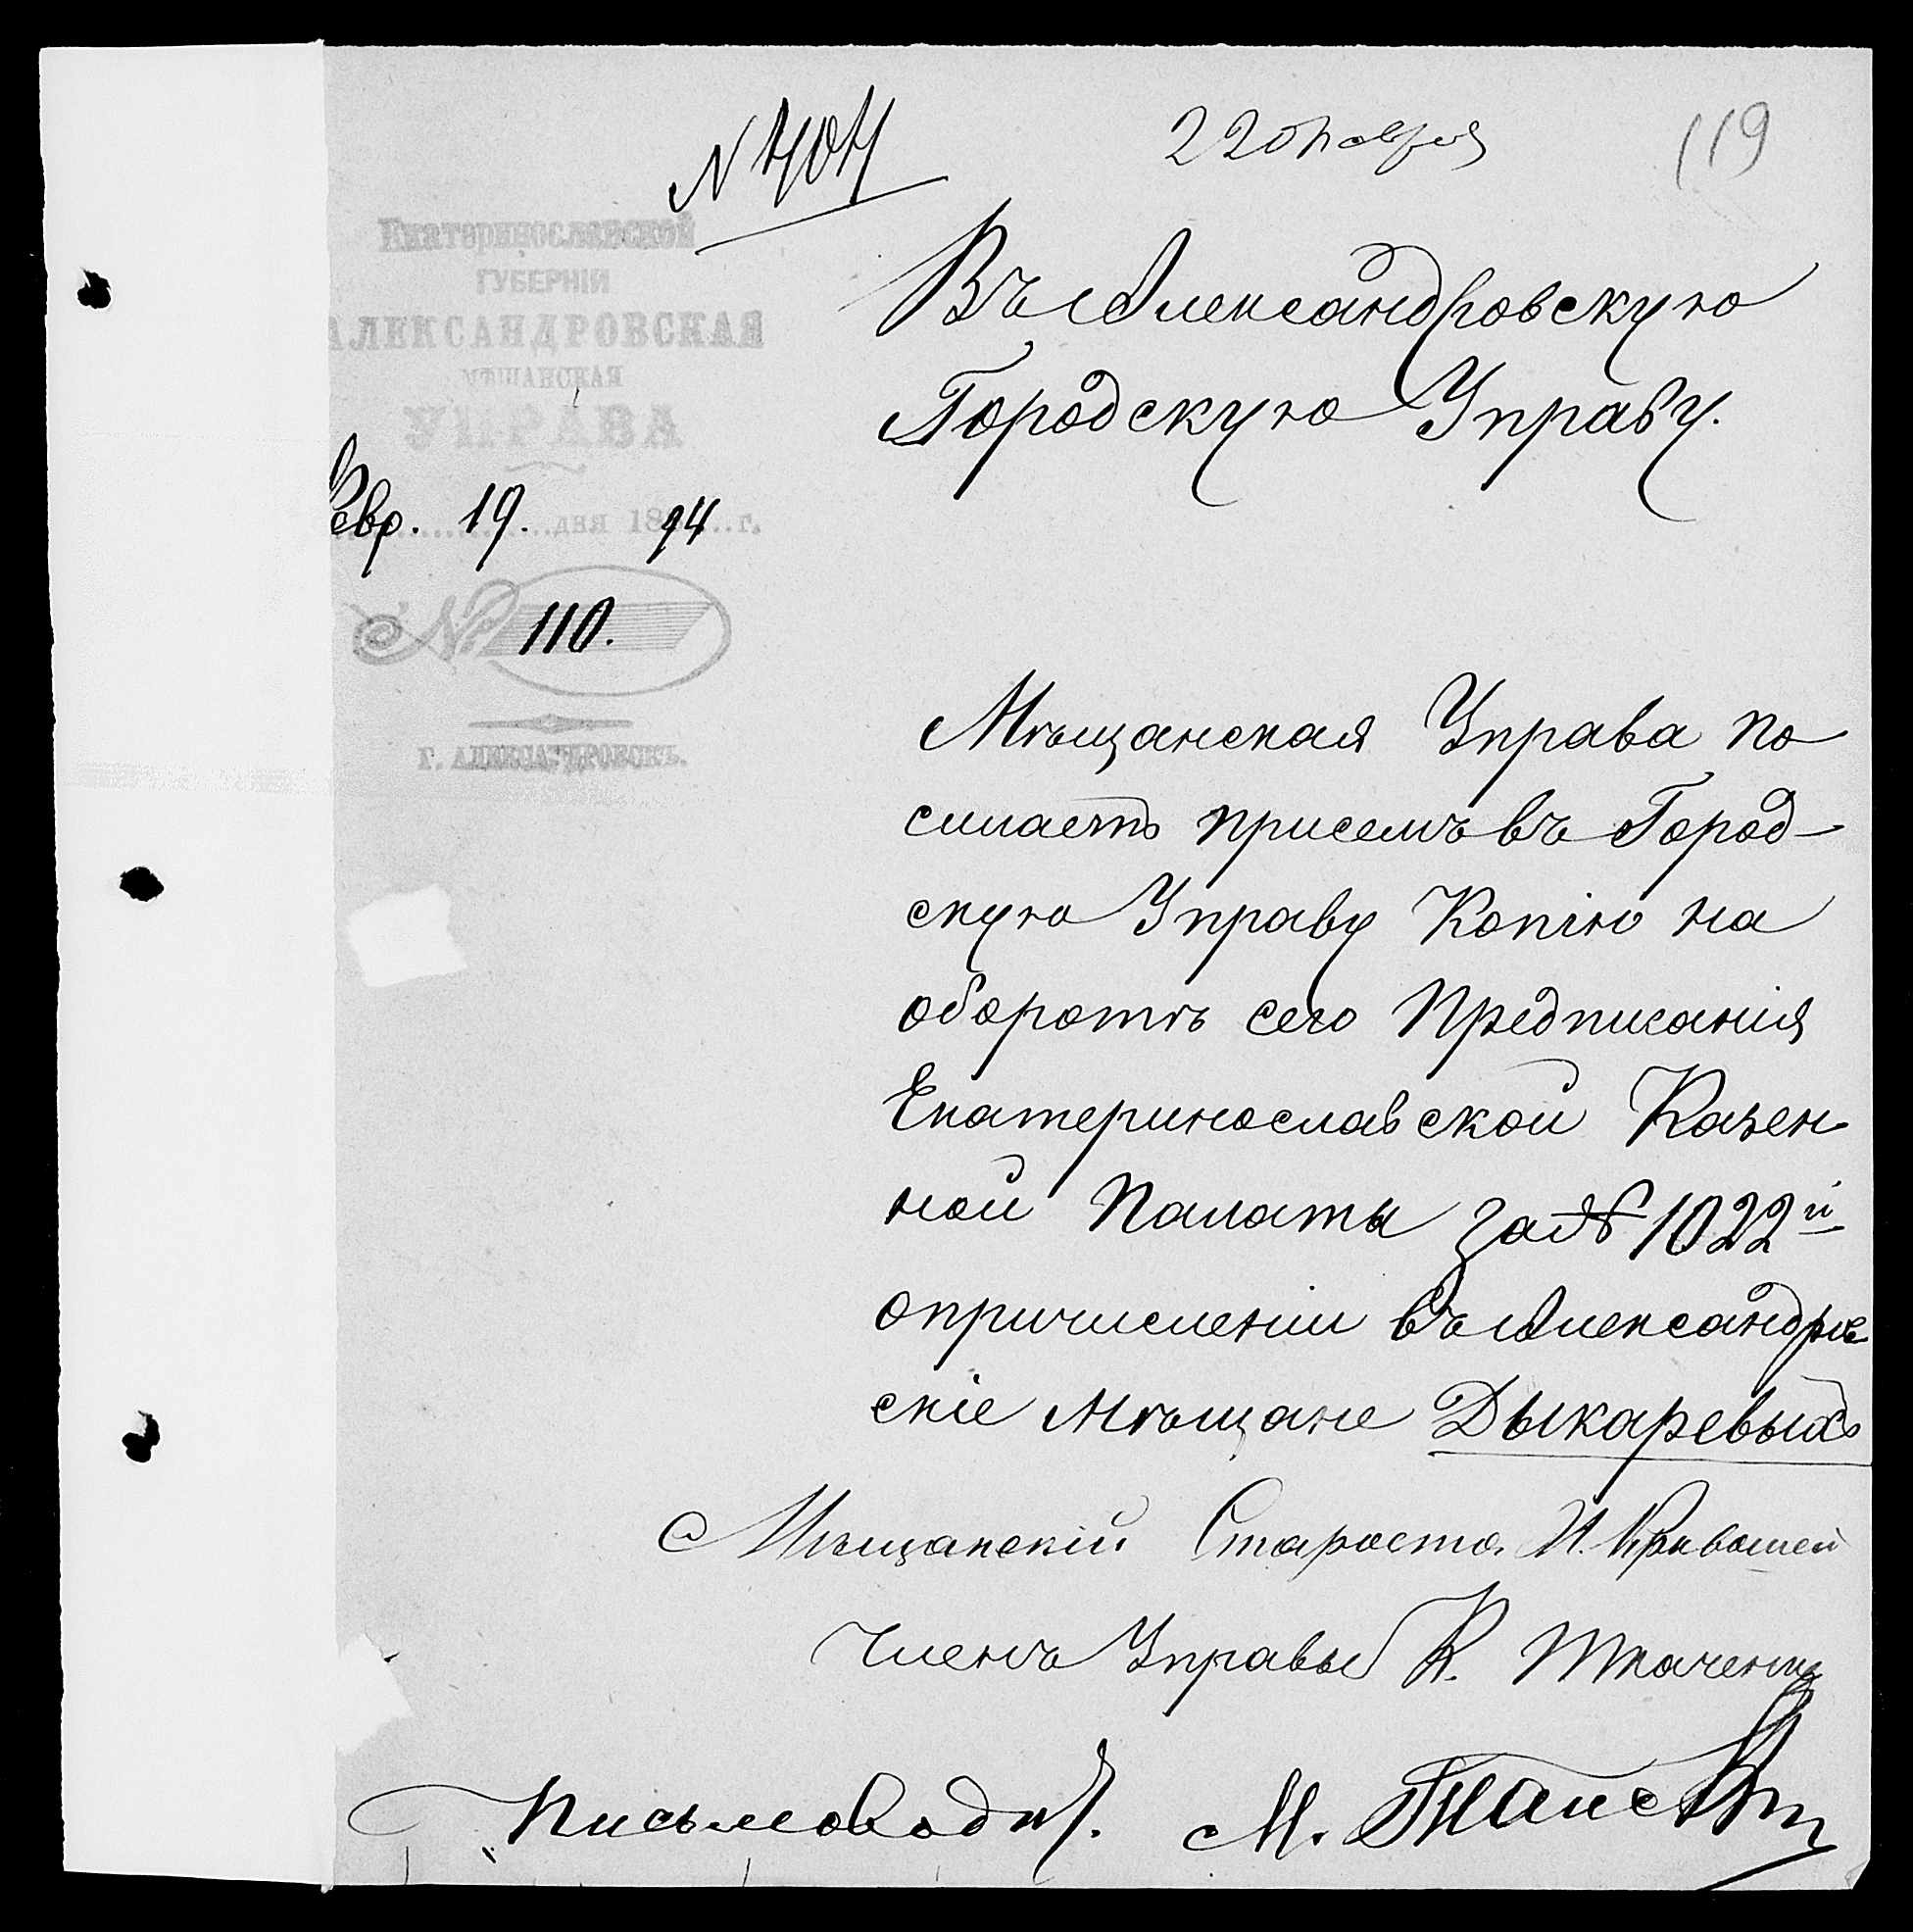 N 404
119
Екатеринославской
ГУБЕРНІИ
АЛЕКСАНДРОВСКАЯ
МѢЩАНСКАЯ
УПРАВА
Февр. 19. дня 1894 г.
№ 110.
Г. АЛЕКСАНДРОВСКЪ.
Въ Александровскую
Городскую Управу.
Мѣщанская Управа по
силаетъ присемъ въ Город-
скую Управу Копію на
оборотѣ сего Предписанія
Екатеринославской Казен
ной Палаты за № 1022й
опричисленіи въ Александров
скіе мѣщане Дыкаревыхъ
Мѣщанскій Староста И. Кривошей
Членъ Управы К. Ткаченко
Письмовод. М.